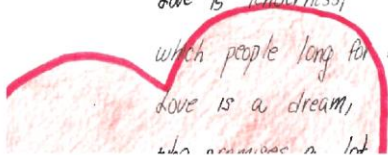 Love is tenderness,
which people long for
Love is a dream,
who promises a lot